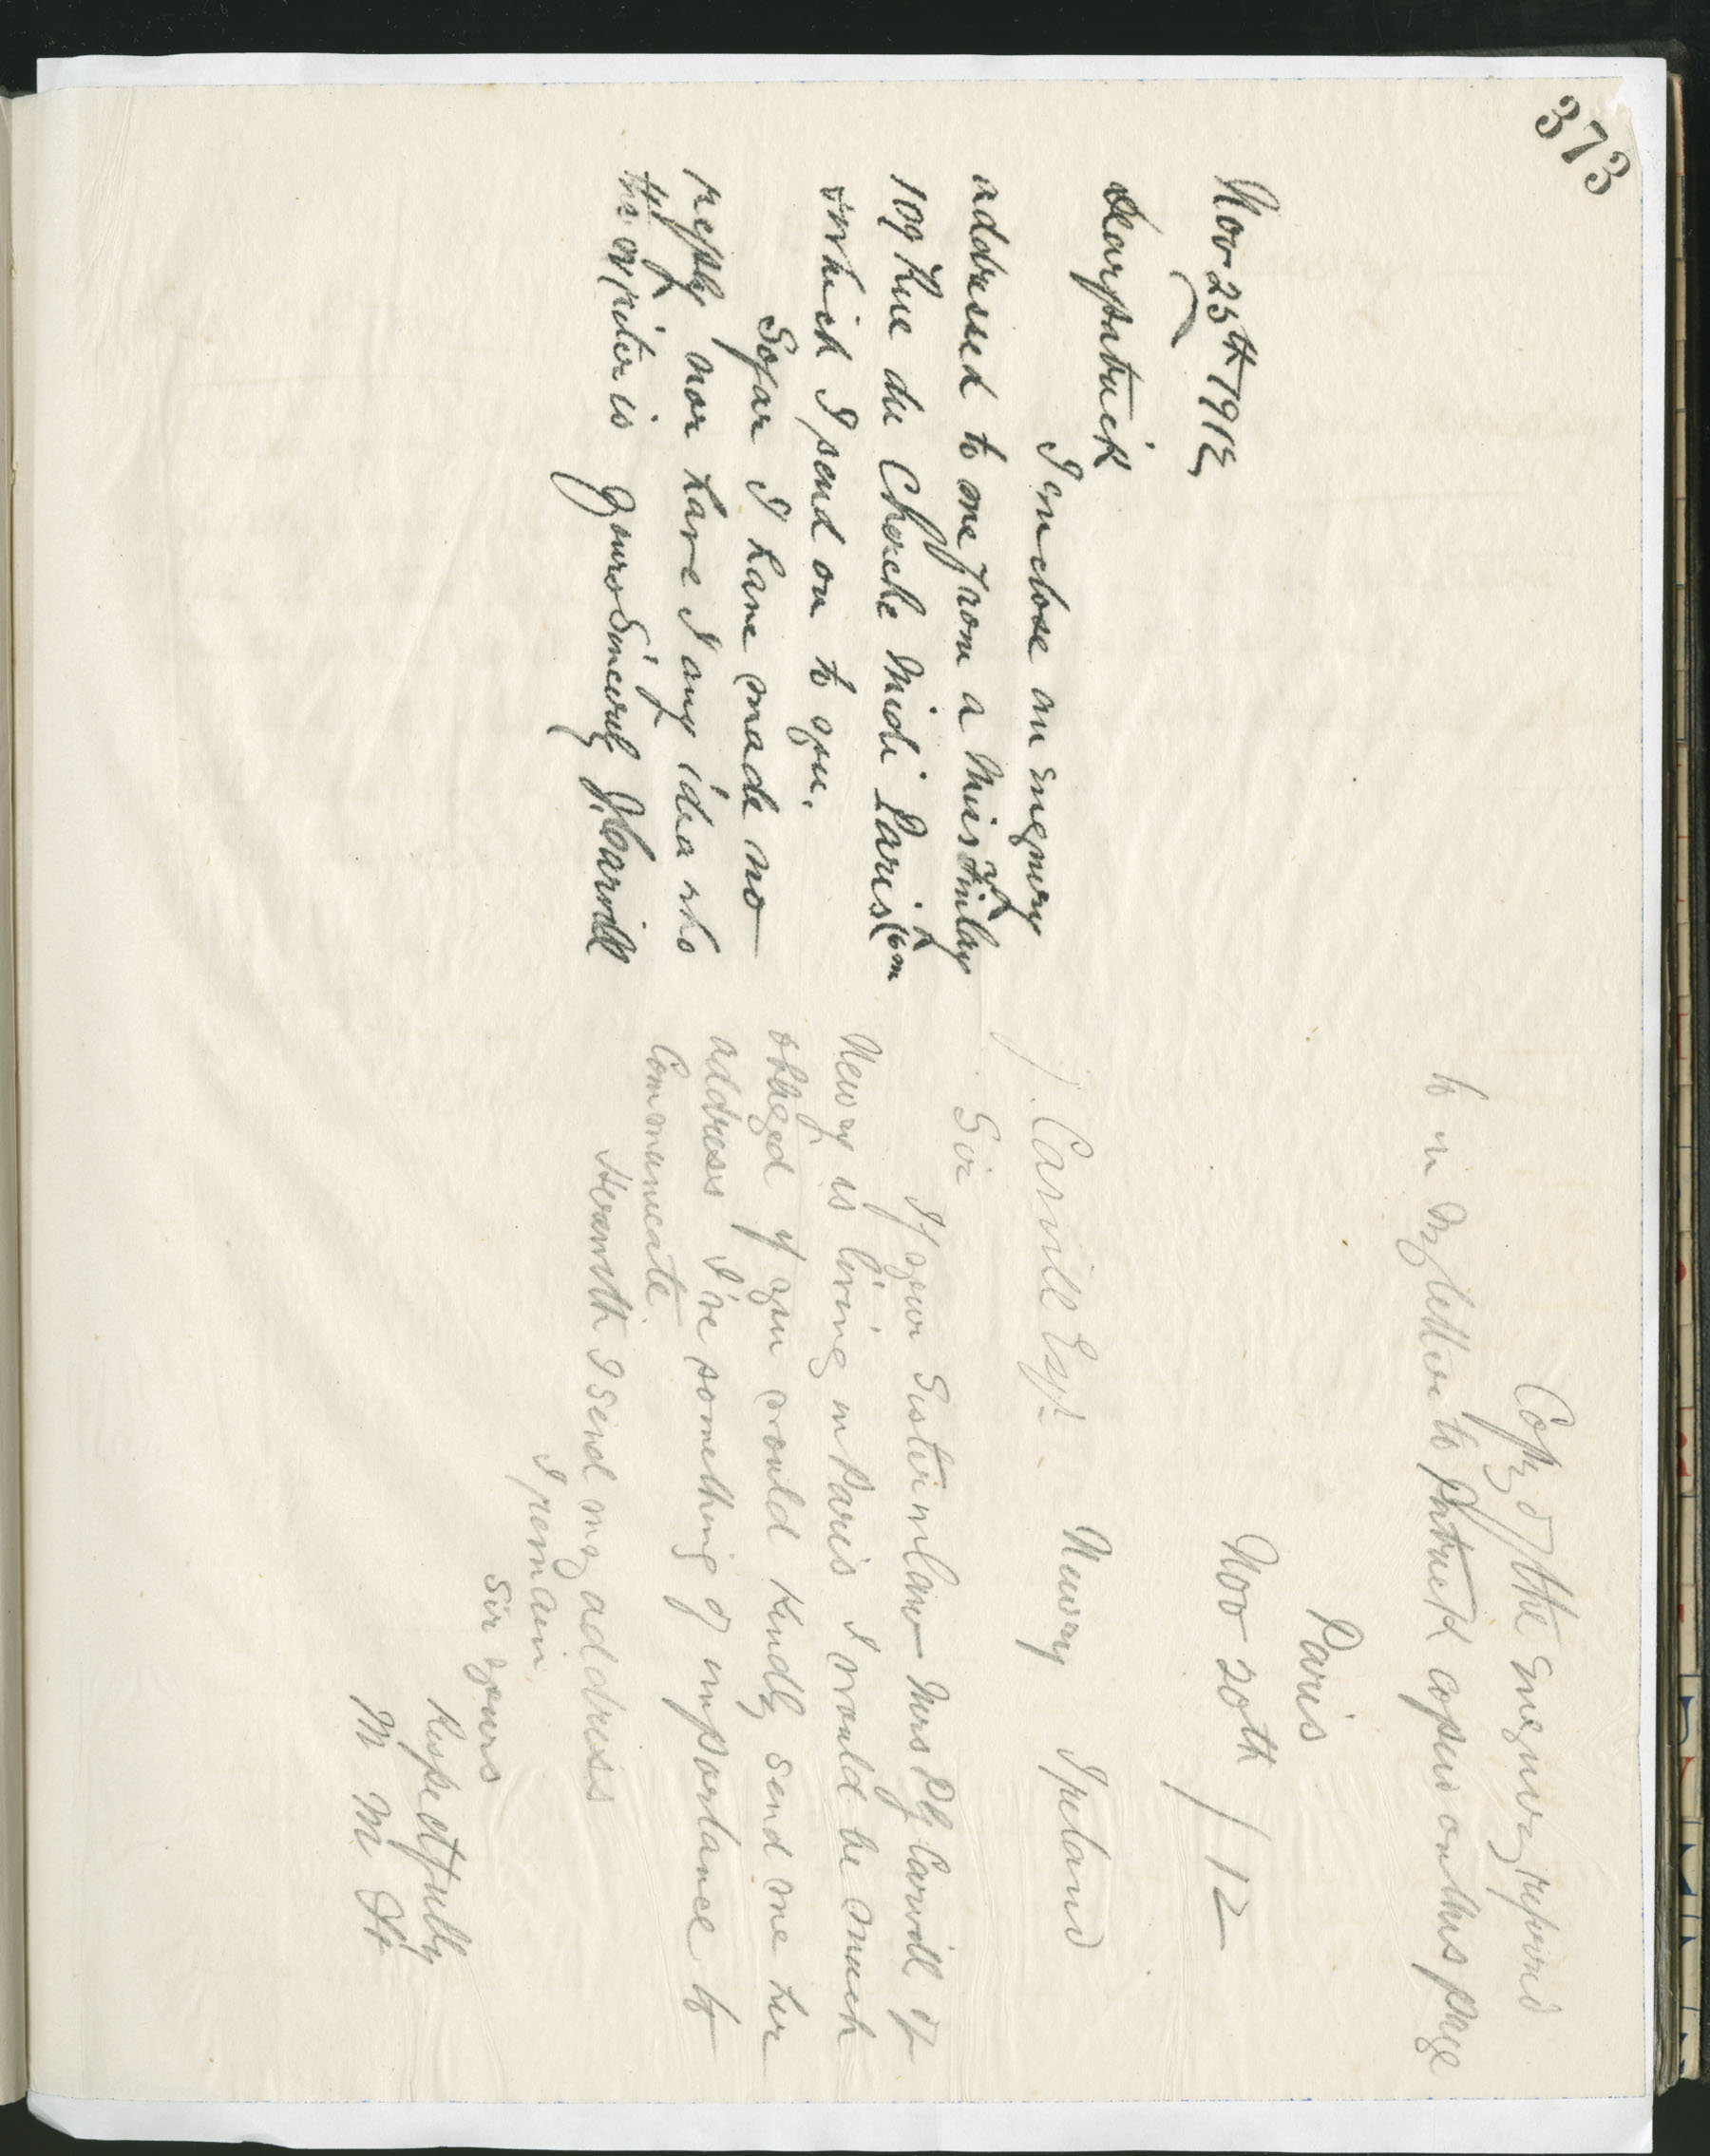 373
Nov 25th 1912
Dear Patrick
I enclose an enquiry
addressed to me from a Miss Finlay
109 Rue du Cherche Midi Paris (6m
which I send on to you.
So far I have made no
reply nor have I any idea who
the writer is Yours Sincerely J. Carvill
Copy of the enquiry referred
to in my letter to Patrick copied on this page
Paris
Nov 20th / 12
J. Carvill Esqr Newry Ireland
Sir
If your Sister in Law Mrs P Carvill of
Newry is living in Paris I would be much
obliged if you would kindly send me her
address I've something of importance to
Communicate.
Herewith I send my address
I remain
Sir yours
Respectfully
M M H